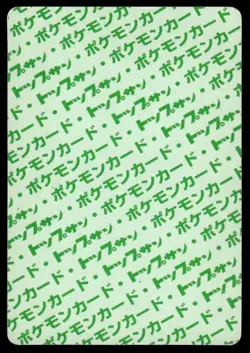 トップサン・ポケモンカード・
ンカード・トップサン・ポケモンカード
ポケモンカード・トップサン・
トップサン・ポケモンカード・トップサン
カード・トップサン・ポケモンカード
ポケモンカード・トップサン・
トップサン・ポケモンカード・トップサン
カード・トップサン・ポケモンカード
ポケモンカード・トップサン・
トップサン・ポケモンカード・
カード・トップサン・ポケモンカード
ポケモンカード・トップサン・
トップサン・ポケモンカード